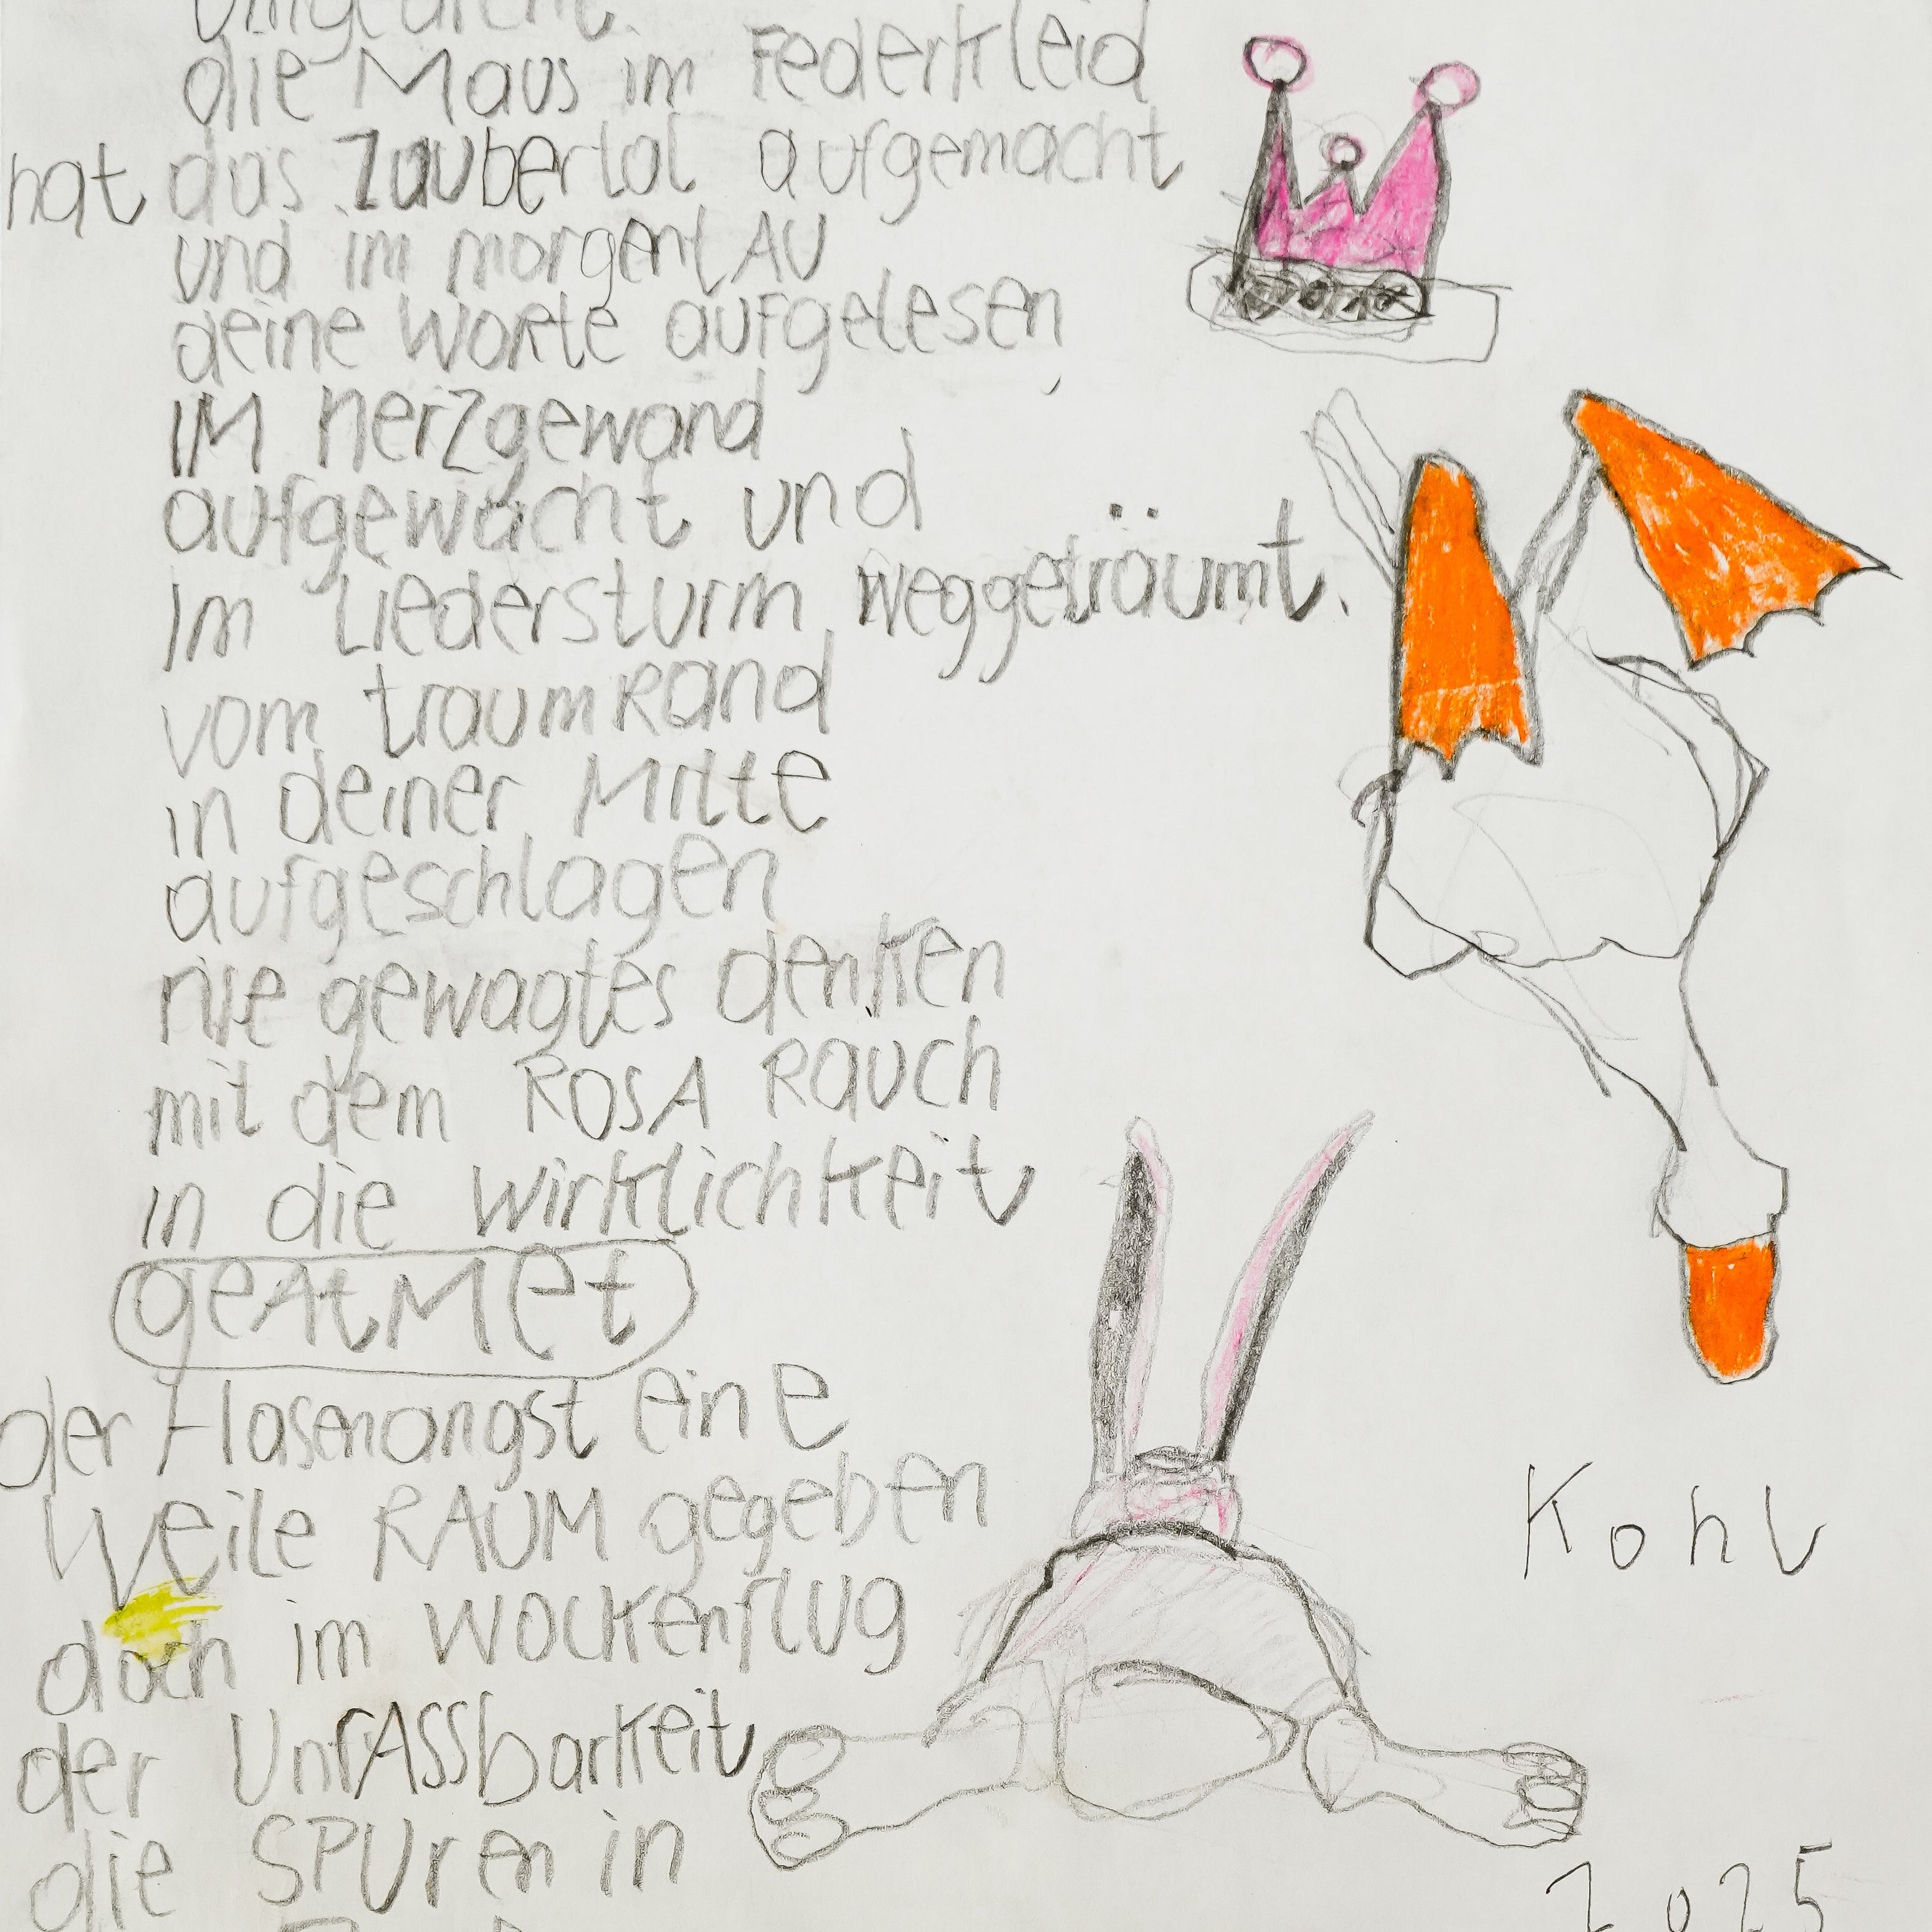 die Maus im Federkleid
hat das Zaubertal aufgemacht
und im morgentAU
deine WoRte aufgelesen,
IM HerZgewand
aufgewacht und
im Liedersturm weggeträumt.
vom traumRand
in deiner Mitte
aufgeschlagen
nie gewagtes denken
mit dem ROSA Rauch
in die wirklichkeit
geAtMet
der Hasenangst eine
Weile RAUM gegeben
doch im wolkenflug
der UnfASSbarkeit
die SPUren in
Kohl
2025